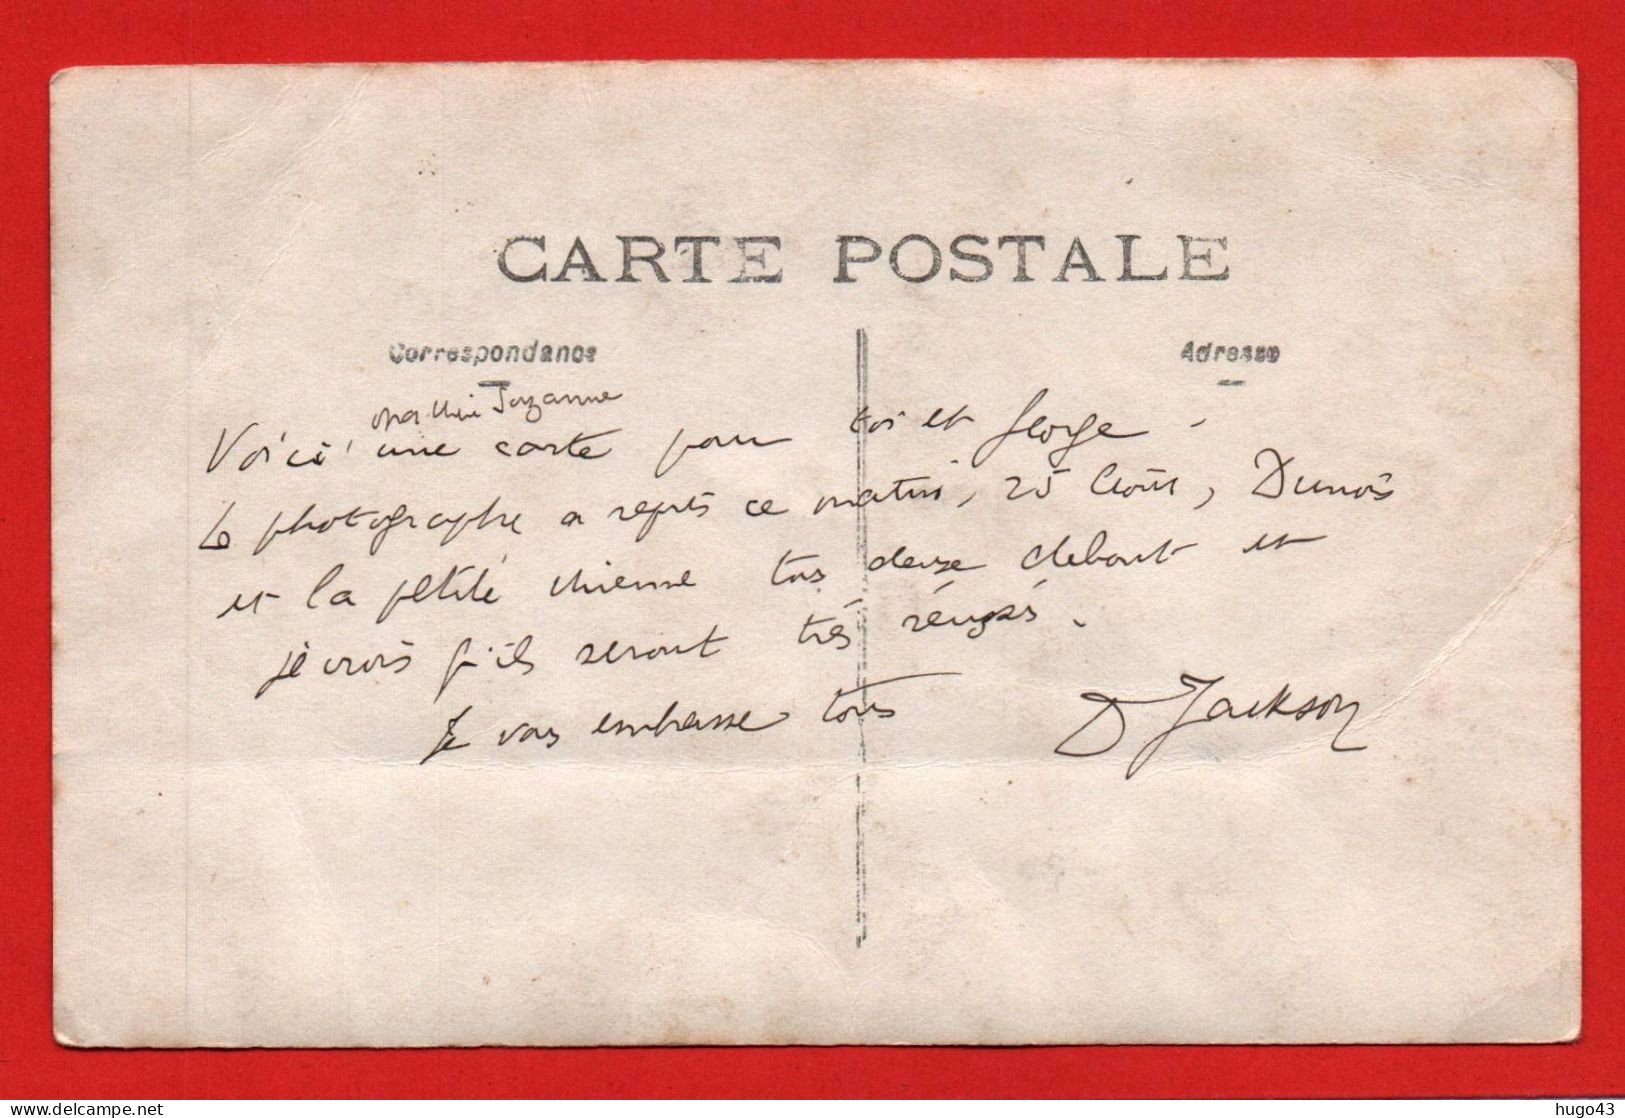 CARTE POSTALE
Correspondance
Adresse
ma Suzanne
Voici une carte pour toi et George.
Le photographe a repris ce matin, 25 Août, Dunois
et la petite chienne tous deux debout et
je crois qu'ils seront très réussis.
Je vous embrasse tous D Jackson
hugo43